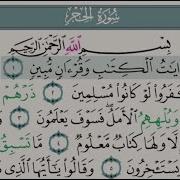 سُورَةُ الحِجْرِ
بِسْمِ اللَّهِ الرَّحْمَٰنِ الرَّحِيمِ
ءَايَٰتُ الْكِتَٰبِ وَقُرْءَانٍ مُّبِينٍ
كَفَرُوا لَوْ كَانُوا مُسْلِمِينَ ٢ ذَرْهُمْ
وَيُلْهِهِمُ الْأَمَلُ فَسَوْفَ يَعْلَمُونَ ٣
لَّا وَلَهَا كِتَابٌ مَّعْلُومٌ ٤ مَّا تَسْبِقُ
يَسْتَـْٔخِرُونَ ٥ وَقَالُوا يَٰٓأَيُّهَا الَّذِي